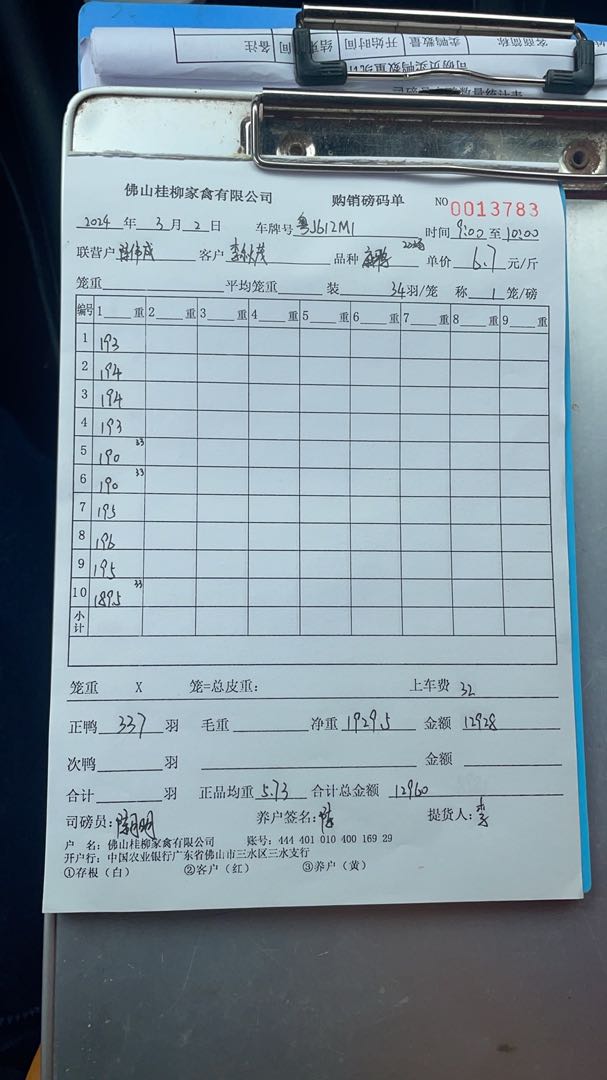 客商简称 卖鸭数量 开始时间 结束时间 备注
司磅员卖鸭数量统计
佛山桂柳家禽有限公司 购销磅码单 NO 0013783
2024 年 3 月 2 日 车牌号 粤J612M1 时间 9:00 至 10:00
联营户 客户 品种 单价 6.7 元/斤
笼重 平均笼重 装 34羽/笼 称 1 笼/磅
编号 1 重 2 重 3 重 4 重 5 重 6 重 7 重 8 重 9 重
1 193
2 194
3 194
4 193
5 190 33
6 190 33
7 195
8 196
9 195
10 189.5 33
小计
笼重 X 笼=总皮重: 上车费 32
正鸭 337 羽 毛重 净重 1929.5 金额 12928
次鸭 羽 金额
合计 羽 正品均重 5.73 合计总金额 12960
司磅员: 养户签名: 陈 提货人: 李
户 名: 佛山桂柳家禽有限公司 账号: 444 401 010 400 169 29
开户行: 中国农业银行广东省佛山市三水区三水支行
①存根(白) ②客户(红) ③养户(黄)